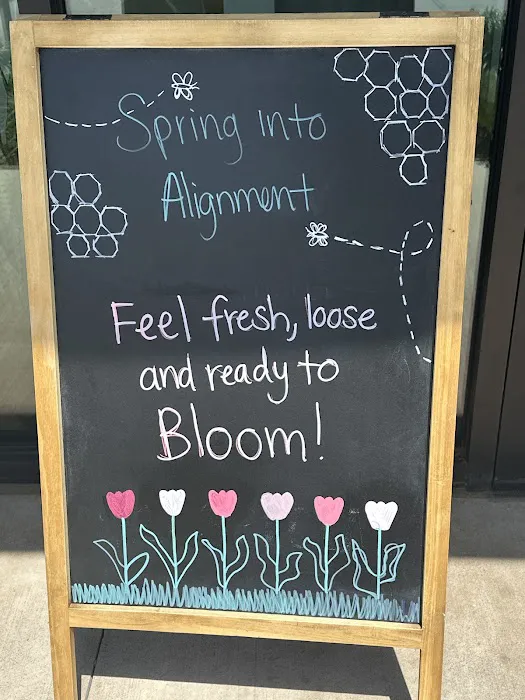 Spring into
Alignment
Feel fresh, loose
and ready to
Bloom!